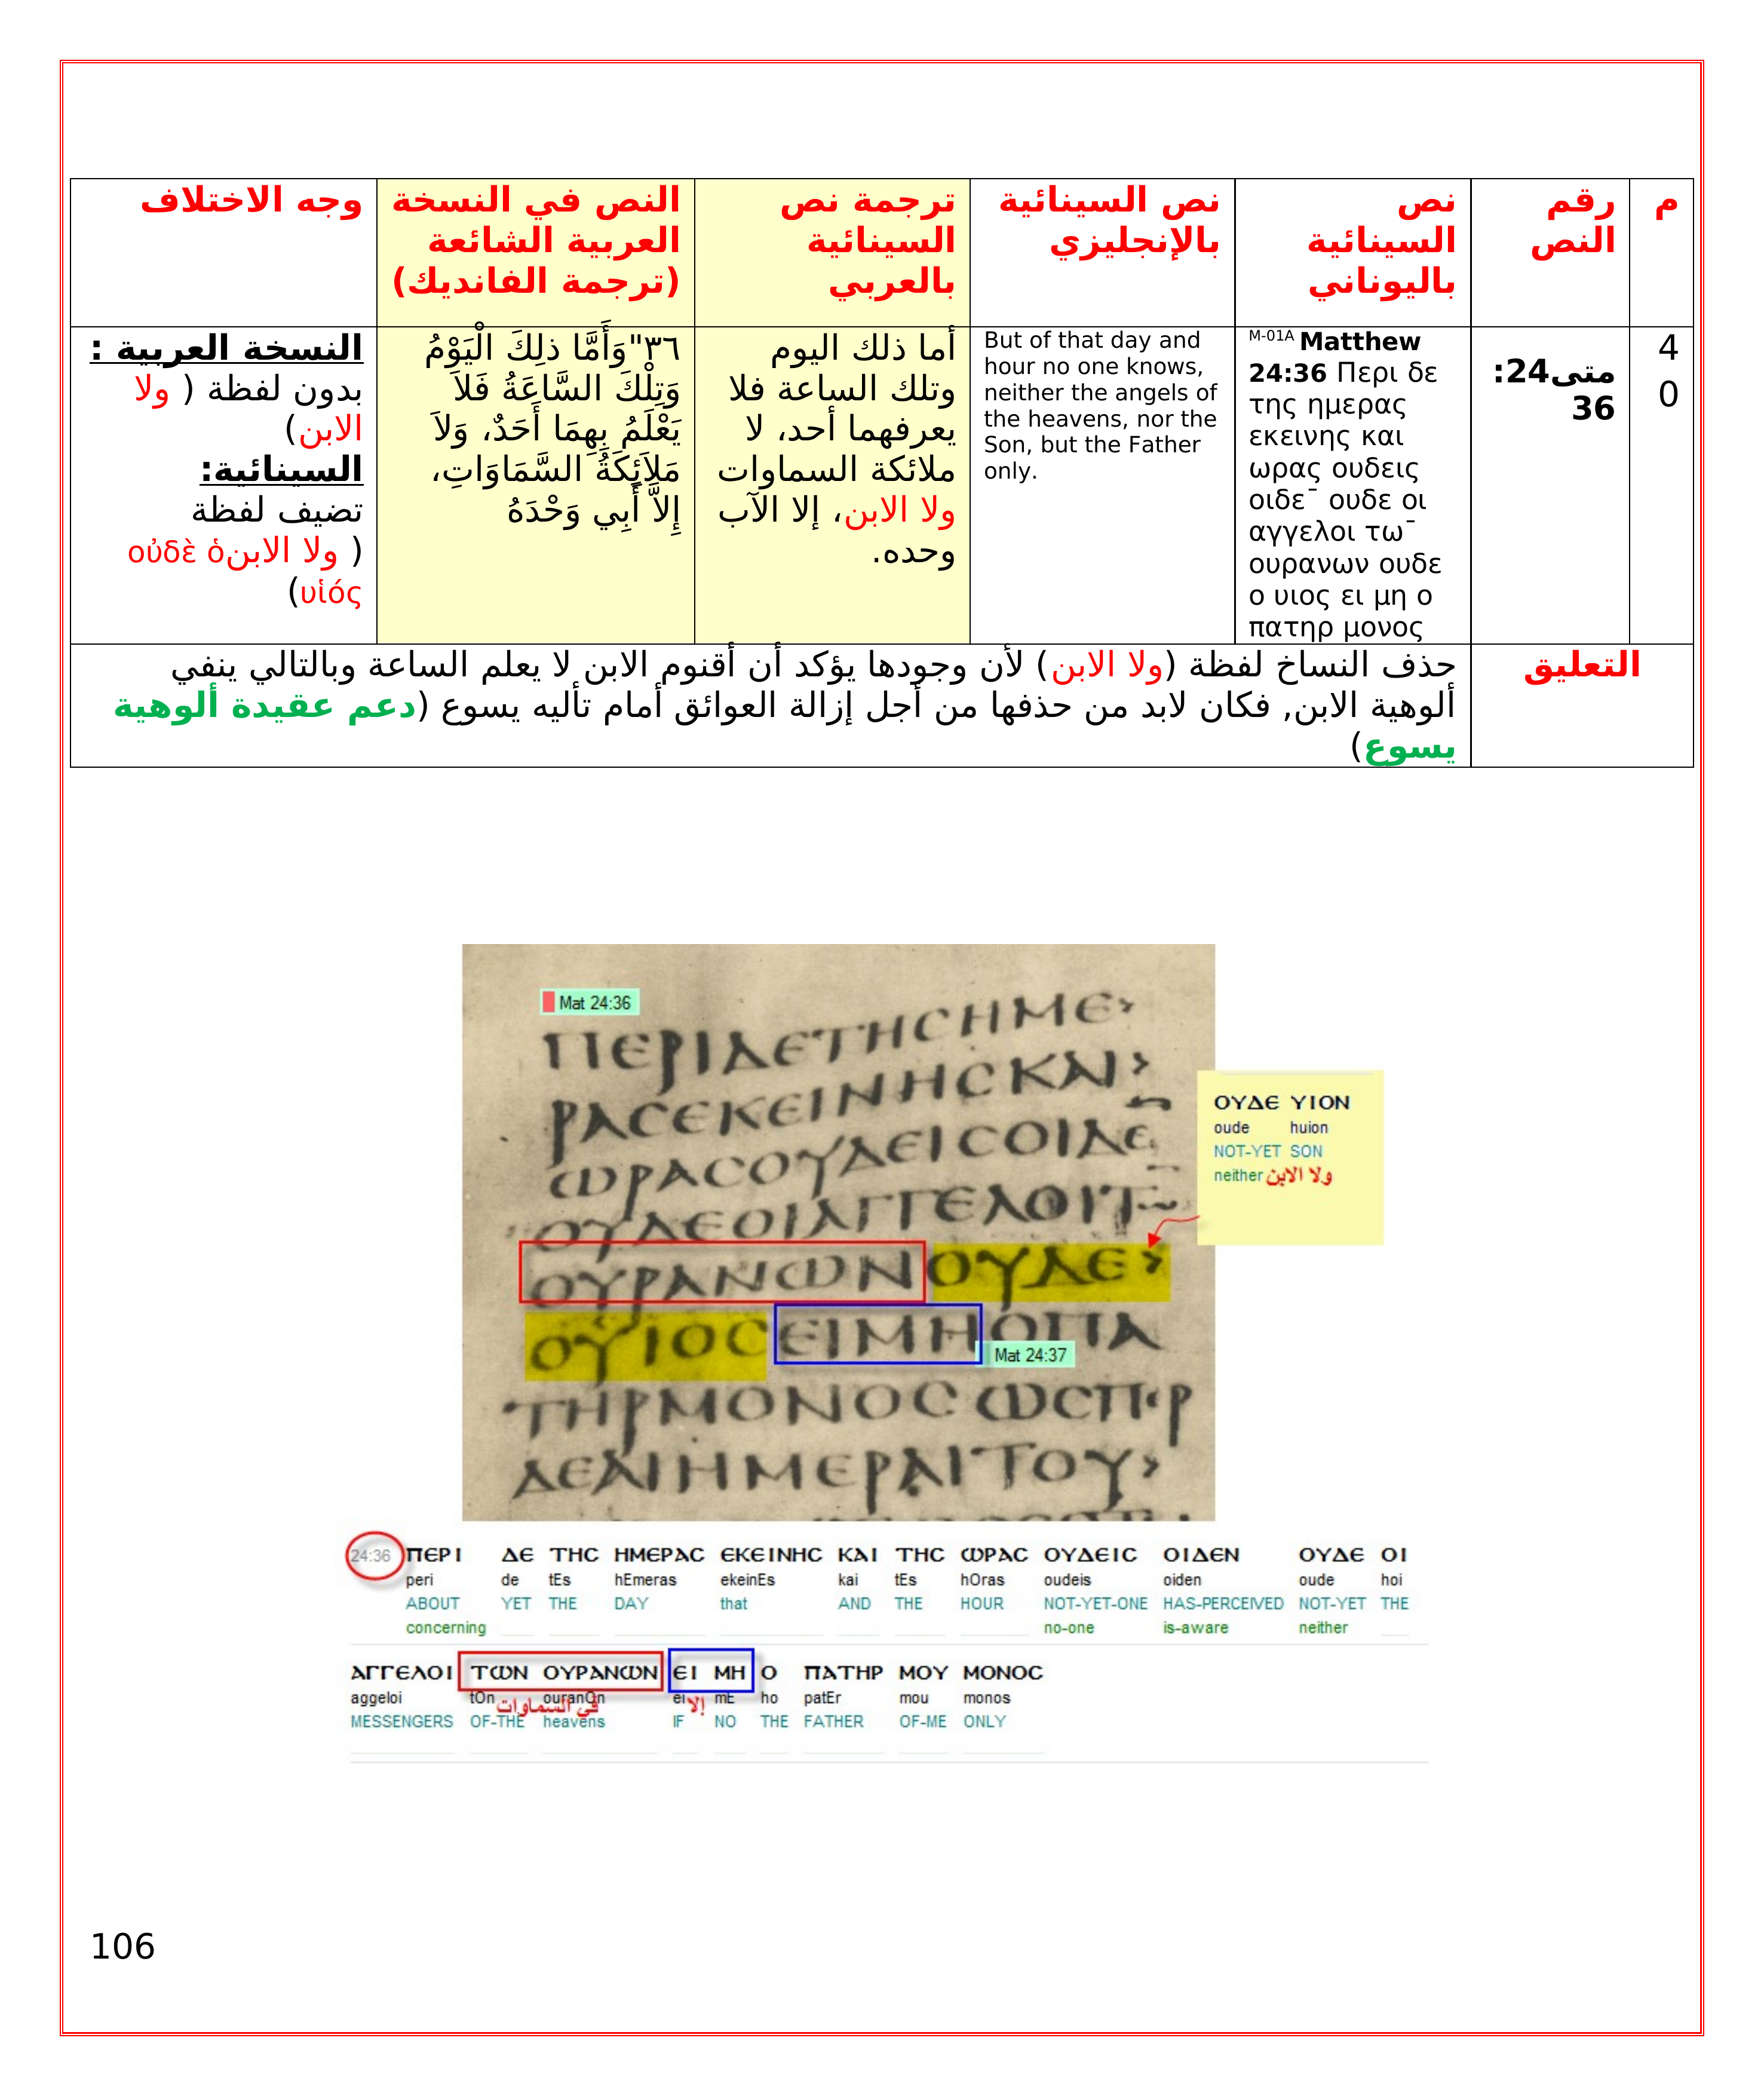 م
رقم
النص
نص
السينائية
باليوناني
نص السينائية
بالإنجليزي
ترجمة نص
السينائية
بالعربي
النص في النسخة
العربية الشائعة
(ترجمة الفانديك)
وجه الاختلاف
4
0
متى24:
36
M-01A Matthew
24:36 Περι δε
της ημερας
εκεινης και
ωρας ουδεις
οιδε¯ ουδε οι
αγγελοι τω¯
ουρανων ουδε
ο υιος ει μη ο
πατηρ μονος
But of that day and
hour no one knows,
neither the angels of
the heavens, nor the
Son, but the Father
only.
أما ذلك اليوم
وتلك الساعة فلا
يعرفهما أحد، لا
ملائكة السماوات
ولا الابن، إلا الآب
وحده.
٣٦"وَأَمَّا ذلِكَ الْيَوْمُ
وَتِلْكَ السَّاعَةُ فَلاَ
يَعْلَمُ بِهِمَا أَحَدٌ، وَلاَ
مَلاَئِكَةُ السَّمَاوَاتِ،
إِلاَّ أَبِي وَحْدَهُ
النسخة العربية :
بدون لفظة ( ولا
الابن)
السينائية:
تضيف لفظة
( ولا الابنοὐδὲ ὁ
υἱός)
التعليق
حذف النساخ لفظة (ولا الابن) لأن وجودها يؤكد أن أقنوم الابن لا يعلم الساعة وبالتالي ينفي
ألوهية الابن, فكان لابد من حذفها من أجل إزالة العوائق أمام تأليه يسوع (دعم عقيدة ألوهية
يسوع)
Mat 24:36
ΠΕΡΙΔΕΤΗCΗΜΕ>
ΡΑCΕΚΕΙΝΗCΚΑΙ>
ΩΡΑCΟΥΔΕΙCΟΙΔΕ
ΟΥΔΕΟΙΑΓΓΕΛΟΙΤ
ΟΥΡΑΝΩΝΟΥΔΕ>
ΟΥΙΟCΕΙΜΗΟΠΑ
Mat 24:37
ΤΗΡΜΟΝΟCΩCΠΡ
ΔΕΑΙΗΜΕΡΑΙΤΟΥ>
ΟΥΔΕ ΥΙΟΝ
oude huion
NOT-YET SON
neither ولا الابن
24:36 ΠΕΡΙ ΔΕ ΤΗC ΗΜΕΡΑC ΕΚΕΙΝΗC ΚΑΙ ΤΗC ΩΡΑC ΟΥΔΕΙC ΟΙΔΕΝ ΟΥΔΕ ΟΙ
peri de tEs hEmeras ekeinEs kai tEs hOras oudeis oiden oude hoi
ABOUT YET THE DAY that AND THE HOUR NOT-YET-ONE HAS-PERCEIVED NOT-YET THE
concerning no-one is-aware neither
ΑΓΓΕΛΟΙ ΤΩΝ ΟΥΡΑΝΩΝ ΕΙ ΜΗ Ο ΠΑΤΗΡ ΜΟΥ ΜΟΝΟC
aggeloi tOn ouranOn ei mE ho patEr mou monos
في السماوات إلا
MESSENGERS OF-THE heavens IF NO THE FATHER OF-ME ONLY
106